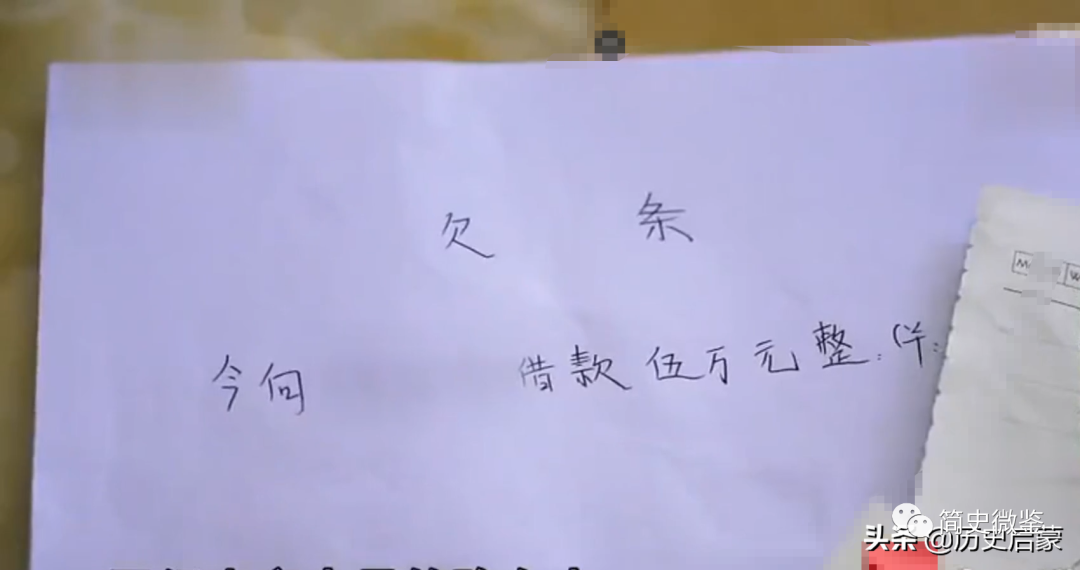 欠 条
今向 借款伍万元整.(
M W
简史微鉴
头条 @历史启蒙